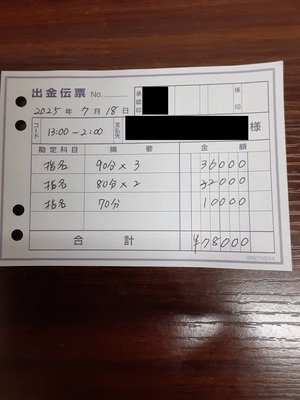 出金伝票 No. 承認印 係印
2025年 7月 18日
コード 13:00~2:00 支払先 様
勘定科目 摘要 金額
指名 90分×3 36000
指名 80分×2 32000
指名 70分 10000
合計 ¥78000